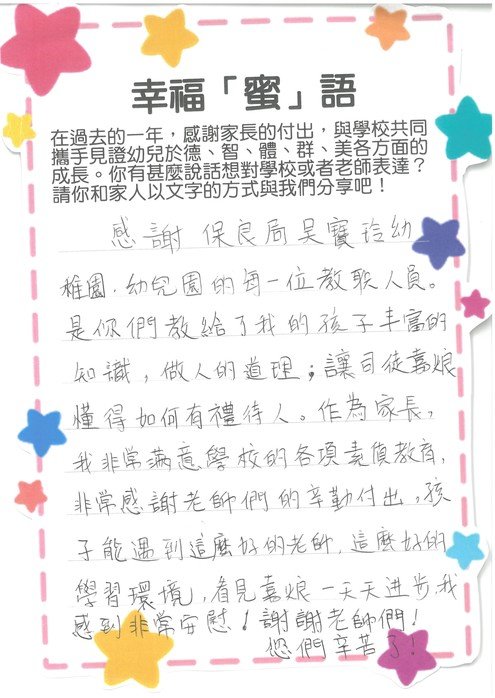 幸福「蜜」語
在過去的一年，感謝家長的付出，與學校共同
攜手見證幼兒於德、智、體、群、美各方面的
成長。你有甚麼說話想對學校或者老師表達？
請你和家人以文字的方式與我們分享吧！
感謝保良局吳寶玲幼
稚園．幼兒園的每一位教職人員。
是你們教給了我的孩子丰富的
知識，做人的道理；讓司徒嘉烺
懂得如何有禮待人。作為家長，
我非常滿意學校的各項素質教育，
非常感謝老師們的辛勤付出，孩
子能遇到這麼好的老師，這麼好的
學習環境，看見嘉烺一天天进步，我
感到非常安慰！謝謝老師們！
您們辛苦了！